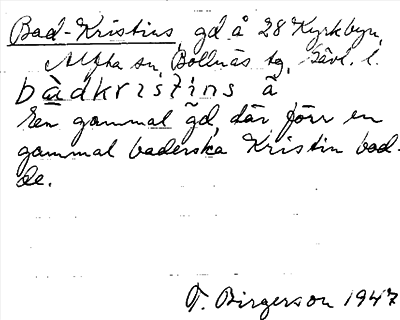 Bad-Kristins, gd å 28 Kyrkbyn,
Alfta sn, Bollnäs tg, Gävl. l.
bàdkristins å
En gammal gd, där förr en
gammal baderska Kristin bod-
de.
T. Birgerson 1947